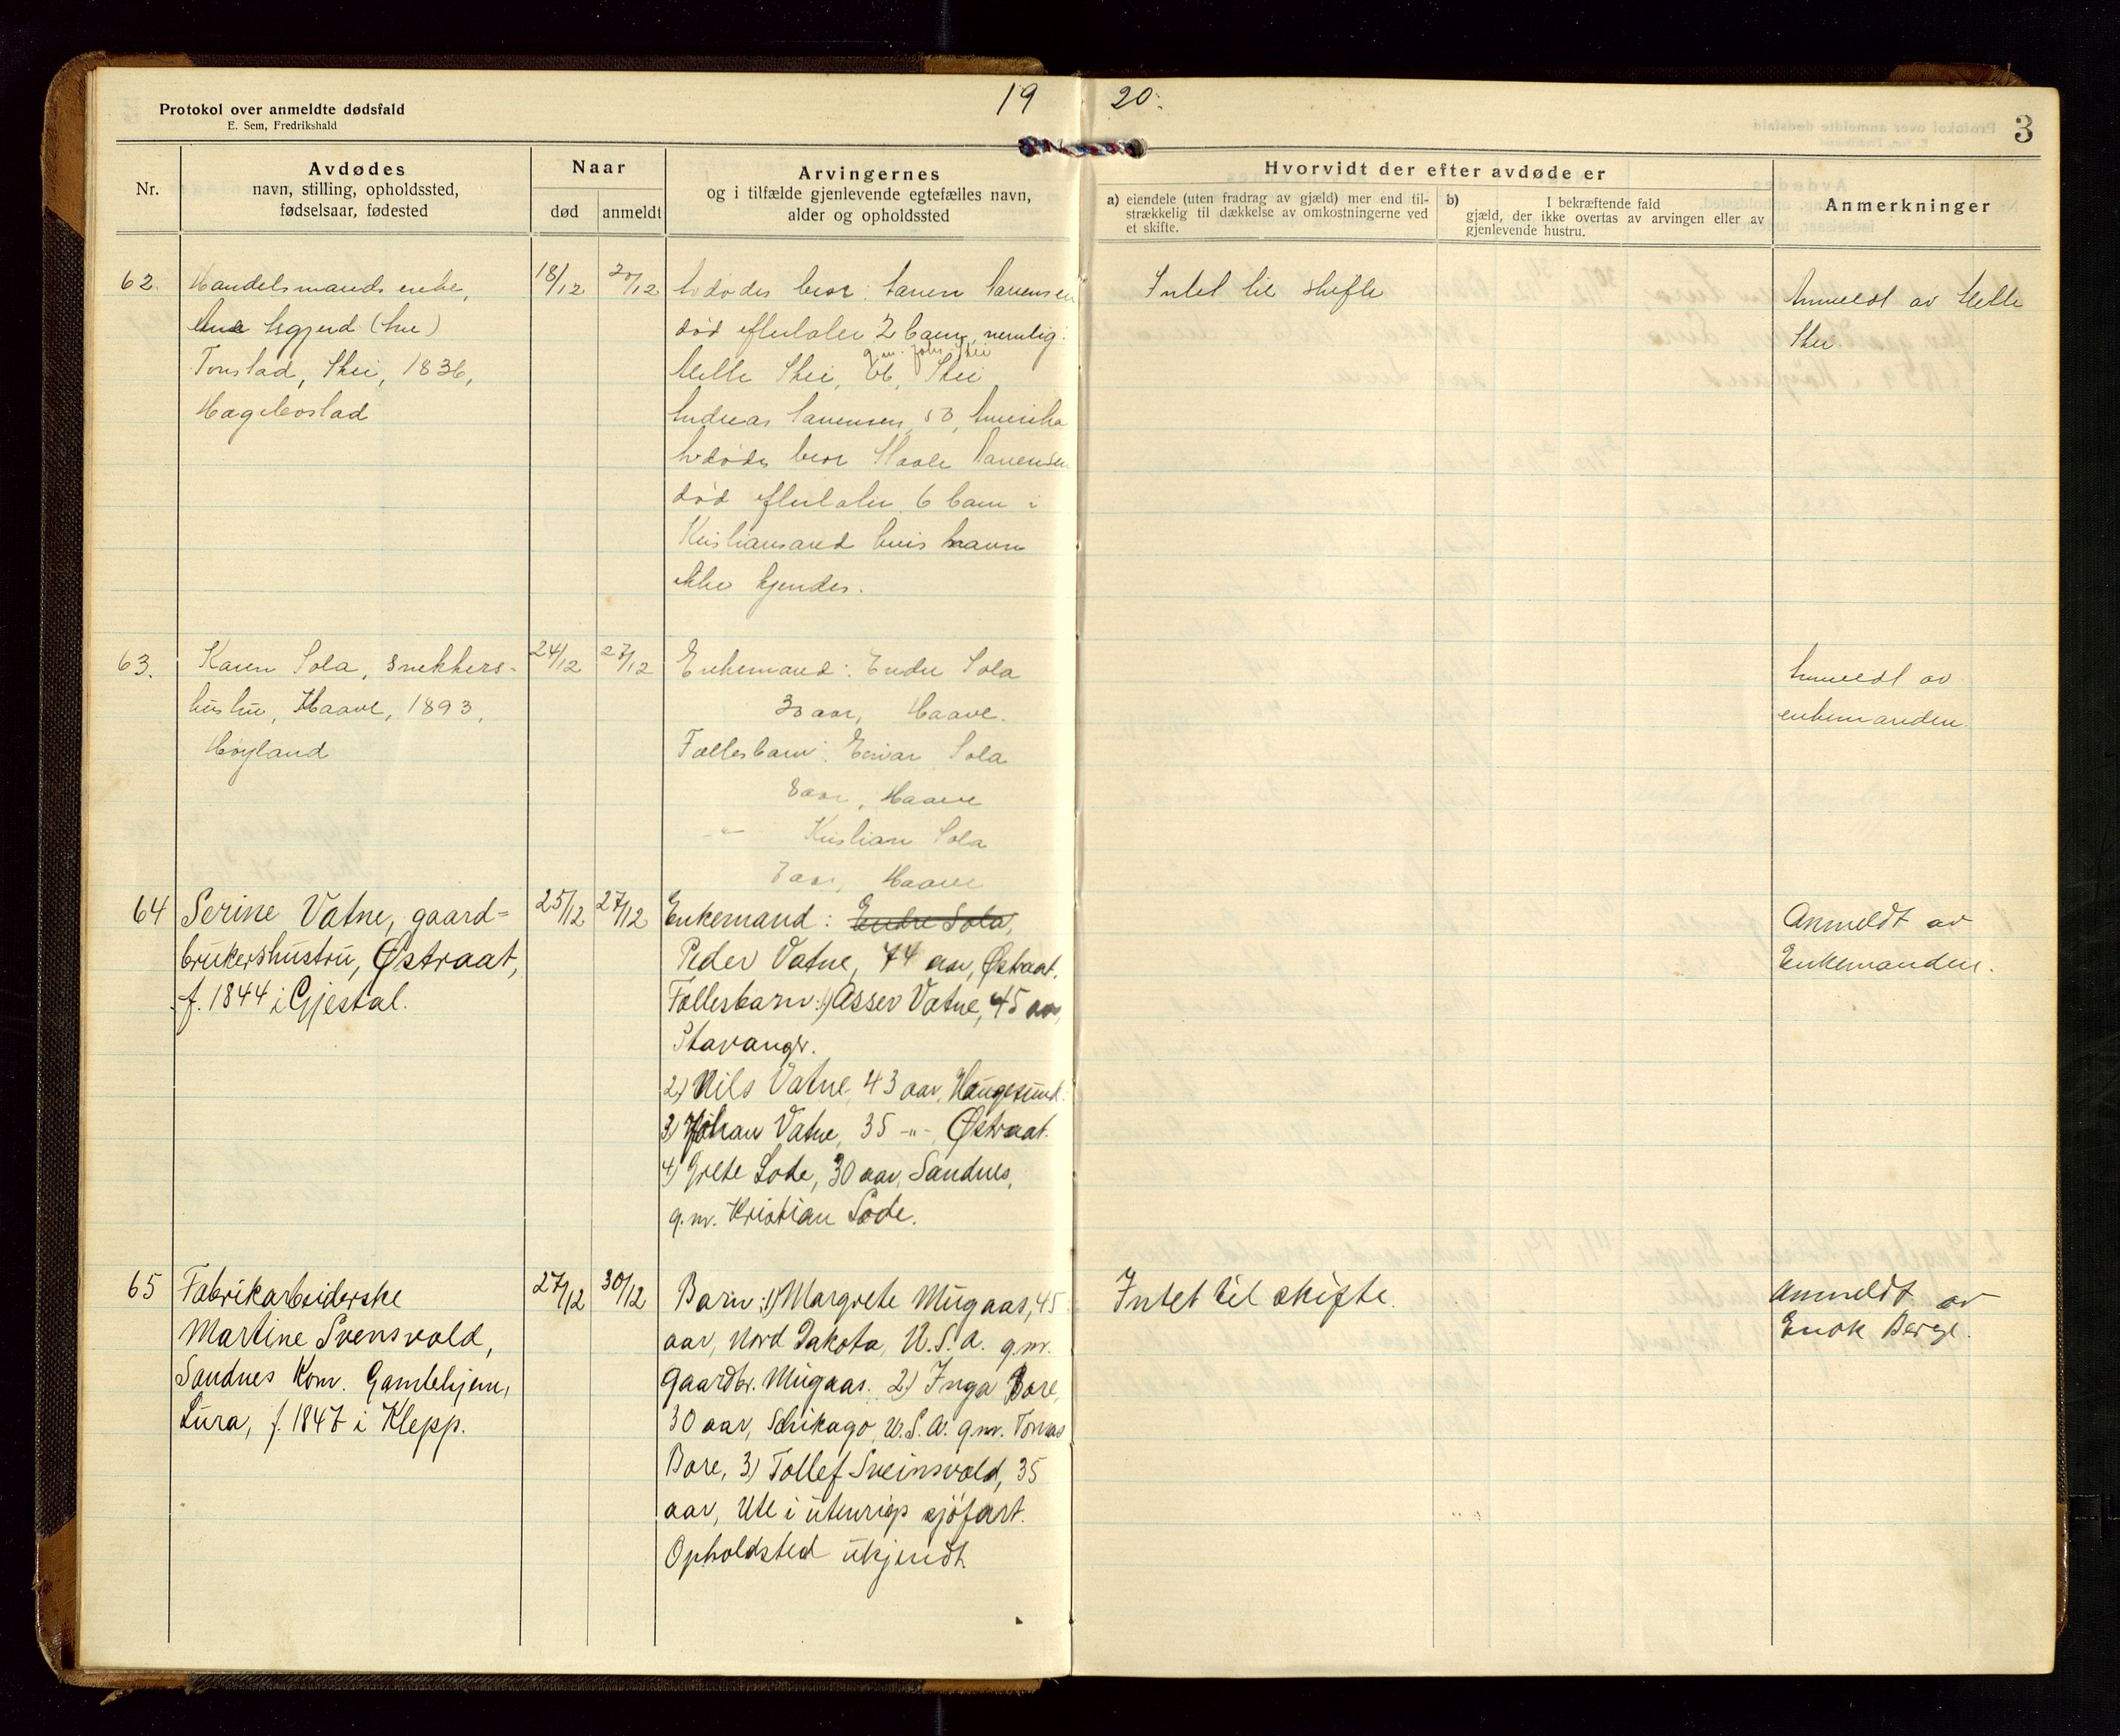 Protokol over anmeldte dødsfald
E. Sem, Fredrikshald
19 20.
3
Nr.
Avdødes
navn, stilling, opholdssted,
fødselsaar, fødested
Naar
død
anmeldt
Arvingernes
og i tilfælde gjenlevende egtefælles navn,
alder og opholdssted
Hvorvidt der efter avdøde er
a) eiendele (uten fradrag av gjæld) mer end til-
strækkelig til dækkelse av omkostningerne ved
et skifte.
b) I bekræftende fald
gjæld, der ikke overtas av arvingen eller av
gjenlevende hustru.
Anmerkninger
62.
Handelsmands enke,
Tonstad, Skei, 1836,
Hægebostad
18/12
20/12
Avdødes bror:
død efterlater 2 barn, nemlig:
g.m. John Skei
Skei, Skei
Andreas 53, Amerika
Avdødes bror
død efterlater 6 barn i
Kristiansand hvis navn
ikke kjendes.
Intet til skifte
Anmeldt av
Skei
63.
Karen Sola, snekkers-
hustru, Haave, 1893,
Høyland
24/12
27/12
Enkemand: Endre Sola
30 aar, Haave.
Fællesbarn: Einar Sola
aar, Haave
-"- Kristian Sola
aar, Haave
Anmeldt av
enkemanden.
64
Serine Vatne, gaard=
brukershustru, Østraat,
f. 1844 i Gjestal.
25/12
27/12
Enkemand: Endre Sola,
Peder Vatne, 74 aar, Østraat.
Fællesbarn: 1) Asser Vatne, 45 aar,
Stavanger.
2) Nils Vatne, 43 aar, Haugesund.
3) Johan Vatne, 35 -"-, Østraat.
4) Grete Lode, 30 aar, Sandnes,
g.m. Kristian Lode.
Anmeldt av
Enkemanden.
65
Fabrikarbeiderske
Martine Svensvold,
Sandnes Kom. Gamlehjem,
Lura, f. 1847 i Klepp.
27/12
30/12
Barn: 1) Margrete Mugaas, 45
aar, Nord Dakota, U.S.A. g.m.
gaardbr. Mugaas. 2) Inga Bore,
30 aar, Schikago, U.S.A. g.m. Tomas
Bore, 3) Tollef Sveinsvold, 35
aar, Ute i utenrigs sjøfart.
Opholdsted ukjendt.
Intet til skifte.
Anmeldt av
Enok Berge.